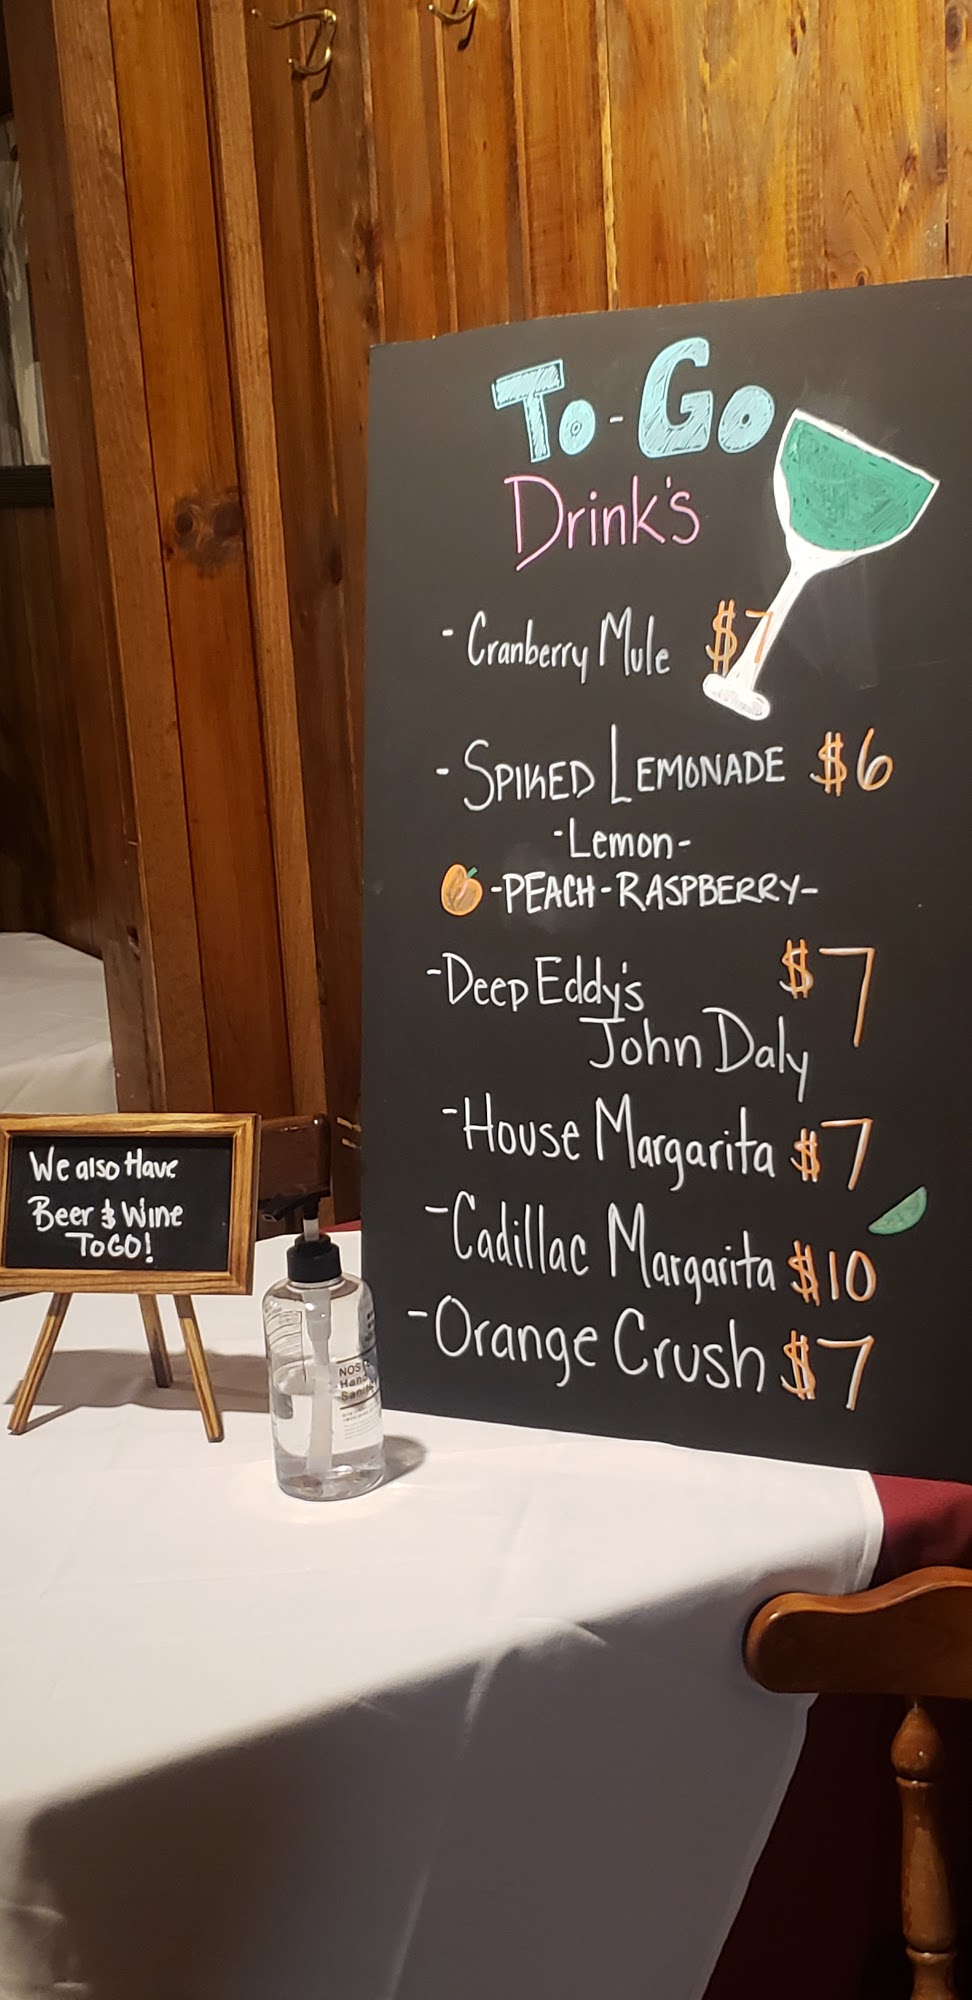 To-Go
Drink's
- Cranberry Mule $7
- SPIKED LEMONADE $6
-Lemon-
-PEACH-RASPBERRY-
-Deep Eddy's $7
John Daly
-House Margarita $7
-Cadillac Margarita $10
-Orange Crush $7
We also Have
Beer & Wine
ToGO!
Hand